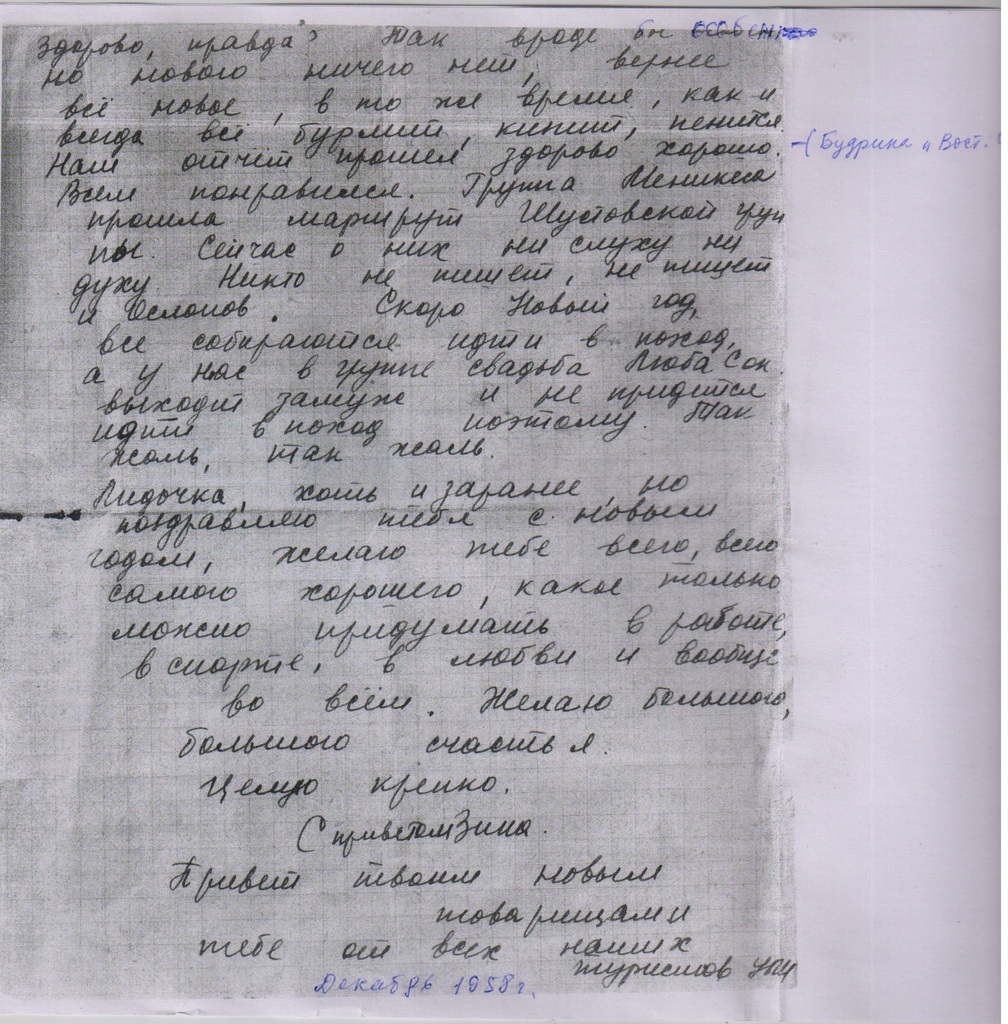 Здорово, правда? Так вроде бы особен
но нового ничего нет, вернее
всё новое, в то же время, как и
всегда всё бурлит, кипит, пенится.
Наш отчёт прошел здорово хорошо.
— (Будрина "Вост.
Всем понравился. Группа
прошла маршрут Шустовской груп
пы. Сейчас о них ни слуху ни
духу. Никто не пишет, не пишет
и Ослопов. Скоро Новый год,
все собираются идти в поход,
а у нас в группе свадьба Люба Сок.
выходит замуж и не придется
идти в поход поэтому. Так
жаль, так жаль.
Лидочка, хоть и заранее, но
поздравляю тебя с новым
годом, желаю тебе всего, всего
самого хорошего, какое только
можно придумать в работе,
в спорте, в любви и вообще
во всём. Желаю большого,
большого счастья.
Целую крепко.
С приветом Зина.
Привет твоим новым
товарищам и
тебе от всех наших
туристов УПИ
Декабрь 1958 г.